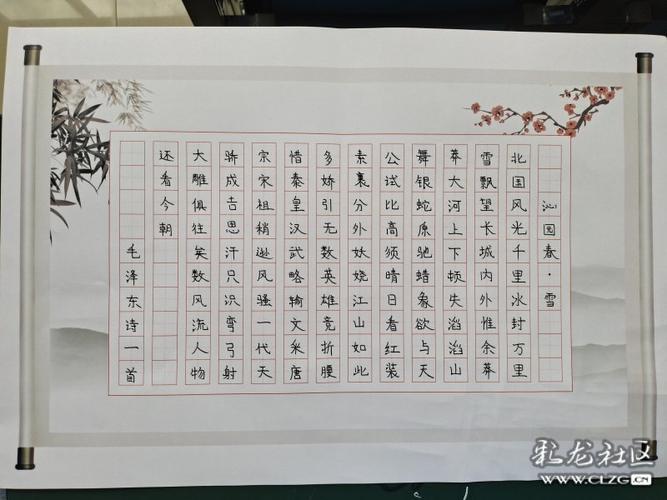 沁园春·雪
北国风光千里冰封万里
雪飘望长城内外惟余莽
莽大河上下顿失滔滔山
舞银蛇原驰蜡象欲与天
公试比高须晴日看红装
素裹分外妖娆江山如此
多娇引无数英雄竞折腰
惜秦皇汉武略输文采唐
宗宋祖稍逊风骚一代天
骄成吉思汗只识弯弓射
大雕俱往矣数风流人物
还看今朝
毛泽东诗一首
彩龙社区
www.CLZG.CN